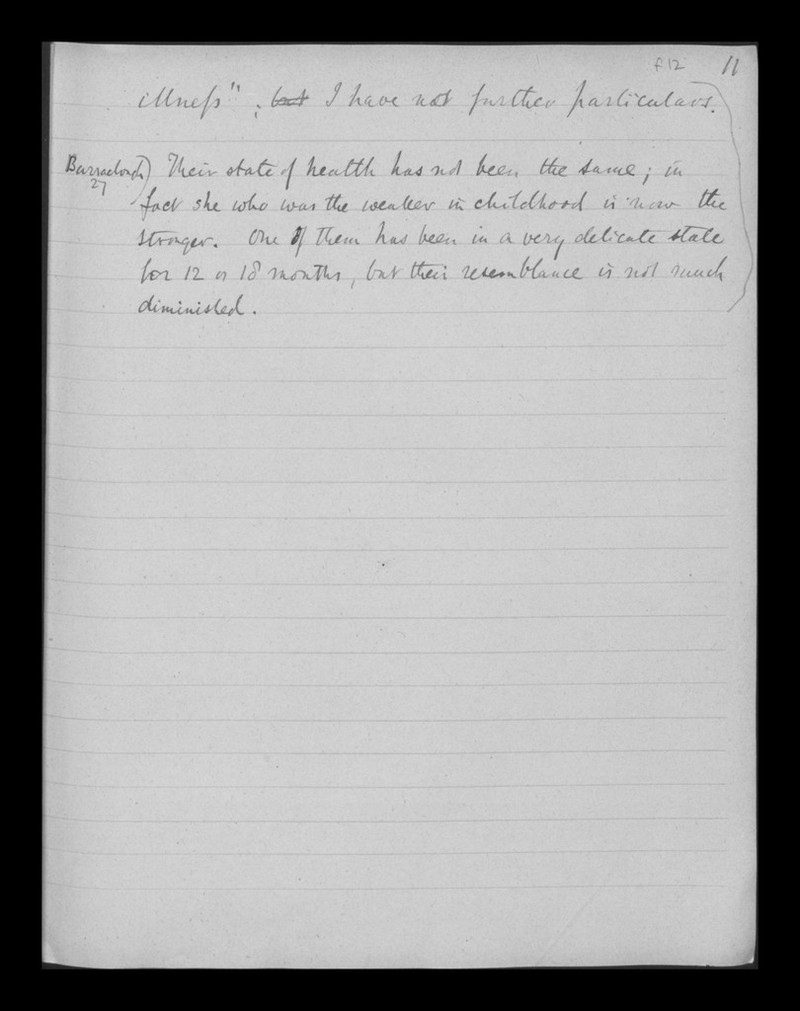 f12 11
illness"; but I have not further particulars.
Barraclough) Their state of health has not been the same; in
27
fact she who was the weaker in childhood is now the
stronger. One of them has been in a very delicate state
for 12 or 18 months, but their resemblance is not much
diminished.